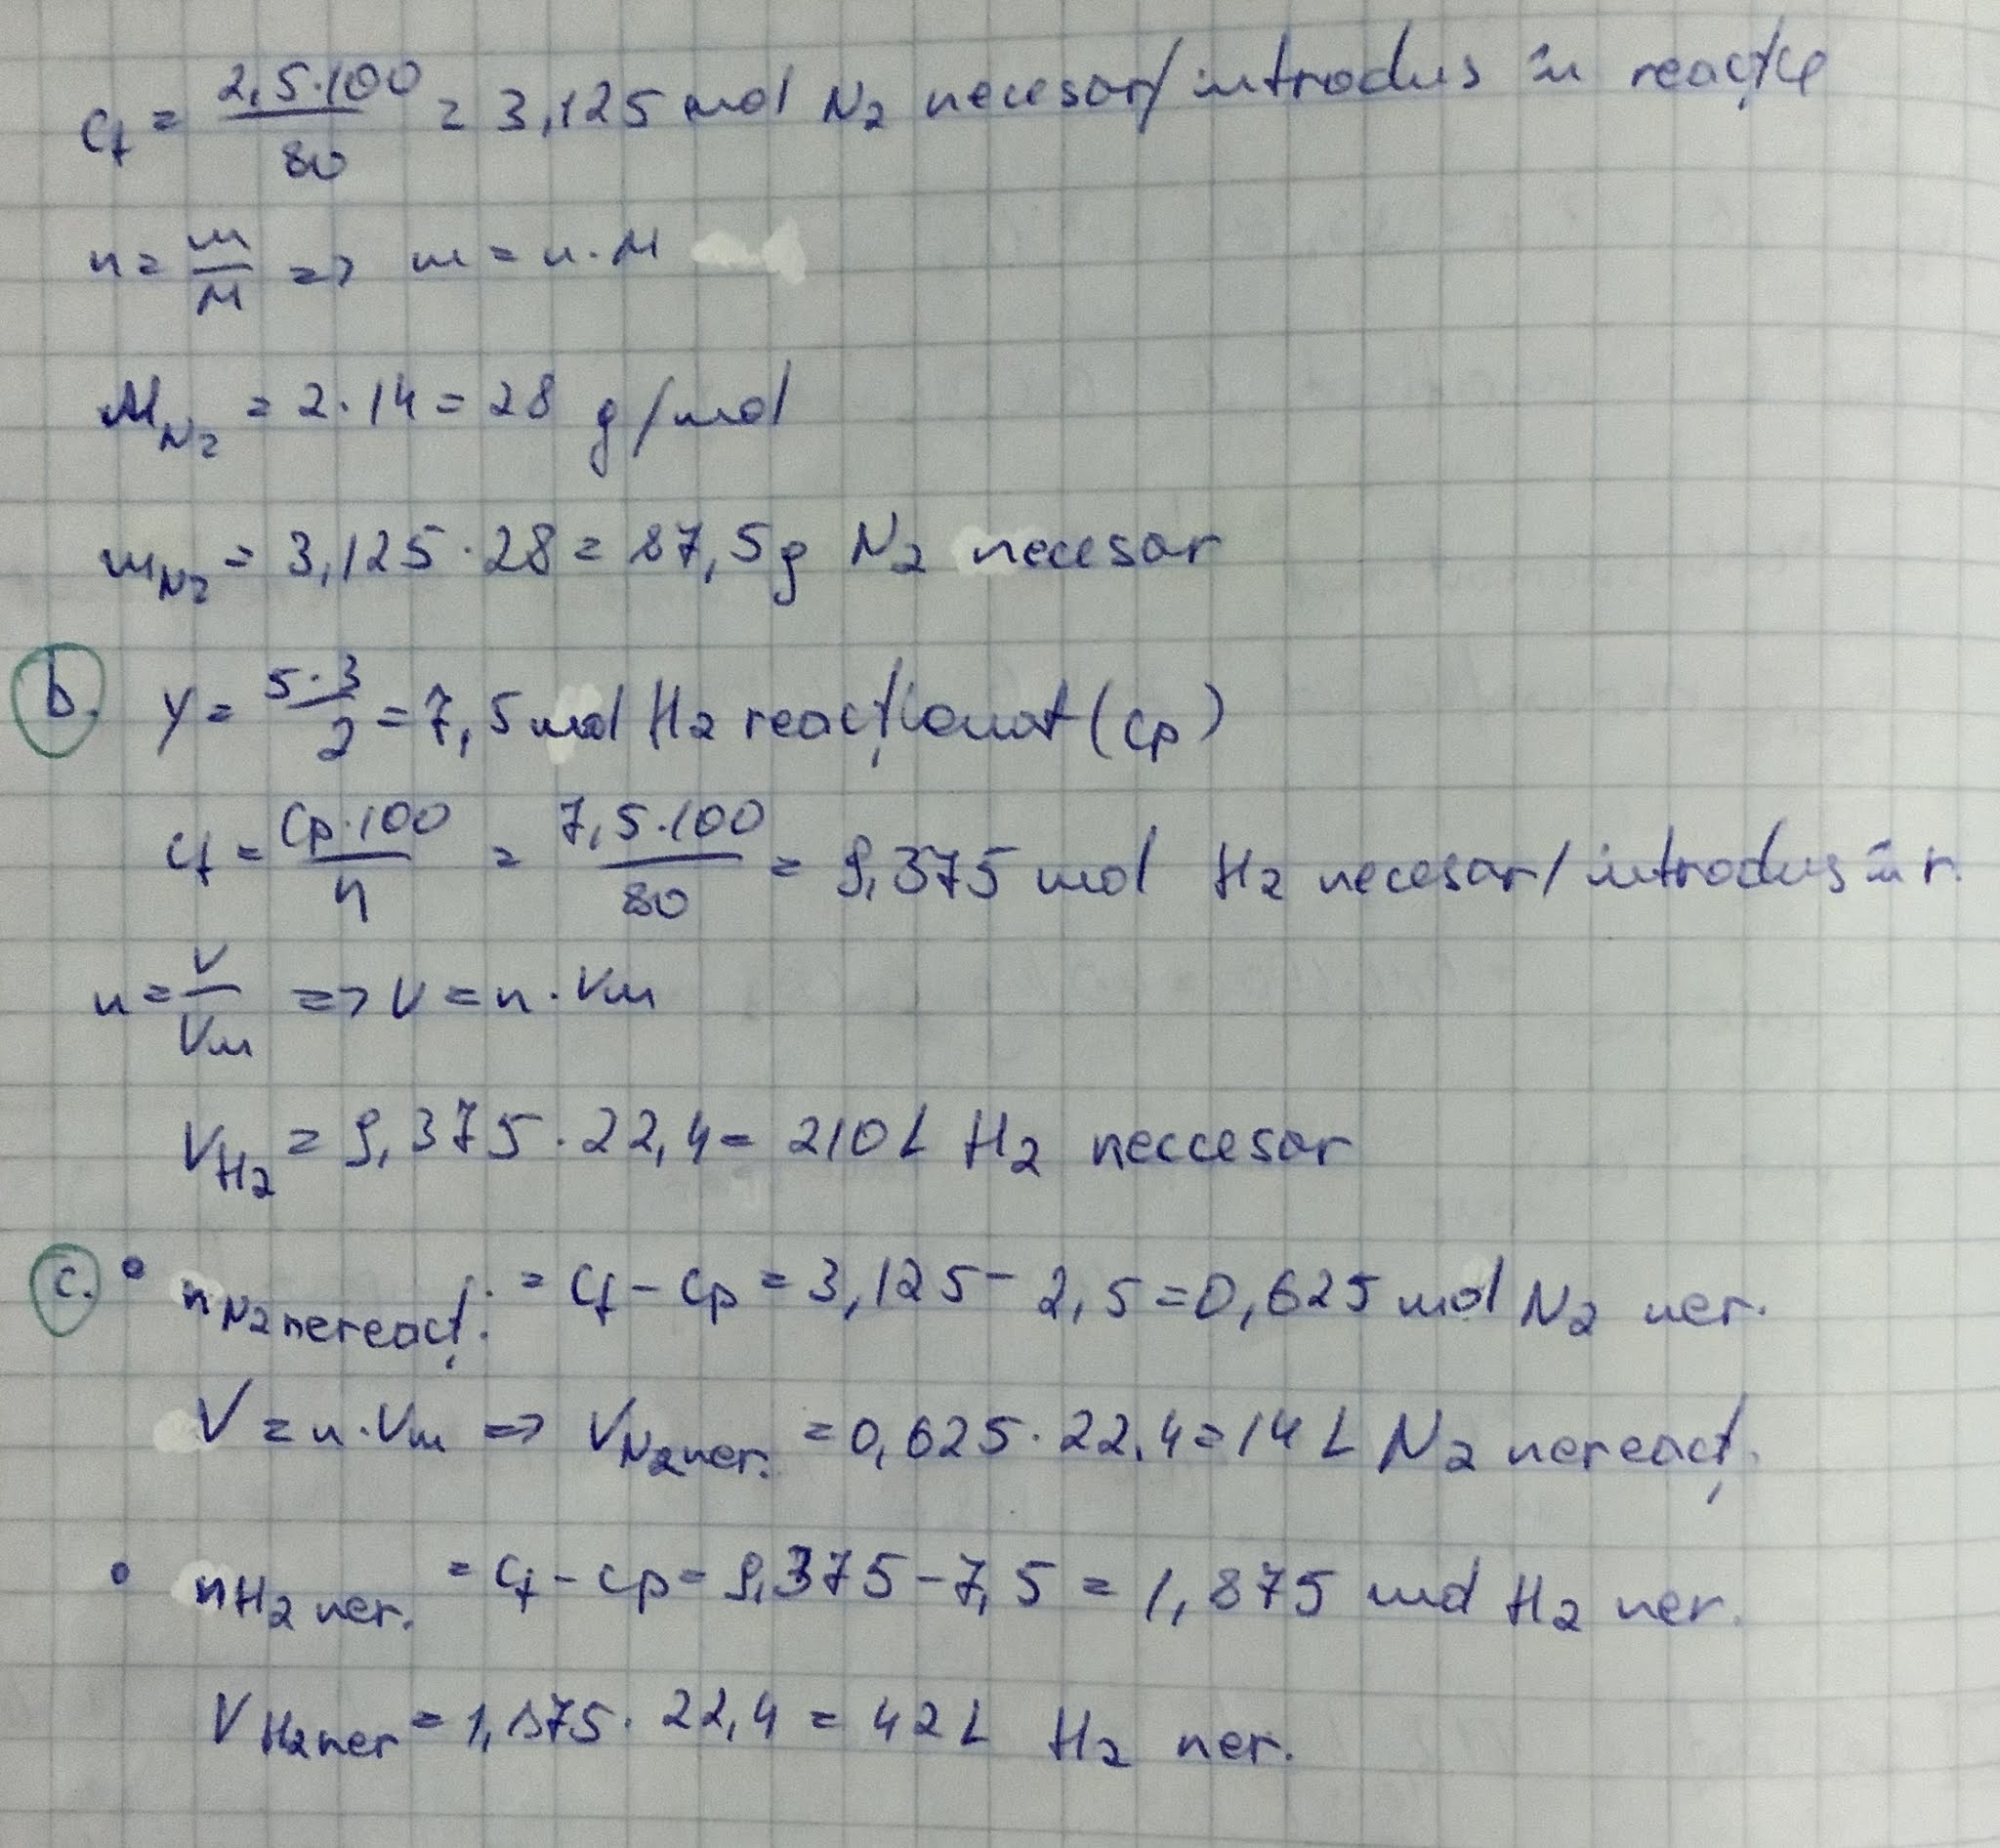 Ct = 2,5·100 / 80 = 3,125 mol N2 necesar/introdus în reacție
n = m/M => m = n·M
MN2 = 2·14 = 28 g/mol
mN2 = 3,125·28 = 87,5g N2 necesar
b. y = 5·3 / 2 = 7,5 mol H2 reacționat (Cp)
Ct = Cp·100 / η = 7,5·100 / 80 = 9,375 mol H2 necesar/introdus în r.
n = V/Vm => V = n·Vm
VH2 = 9,375·22,4 = 210 L H2 neccesar
c. • nN2 nereacț. = Ct - Cp = 3,125 - 2,5 = 0,625 mol N2 ner.
V = n·Vm => VN2 ner. = 0,625·22,4 = 14 L N2 nereacț.
• nH2 ner. = Ct - Cp = 9,375 - 7,5 = 1,875 mol H2 ner.
VH2 ner = 1,875·22,4 = 42 L H2 ner.